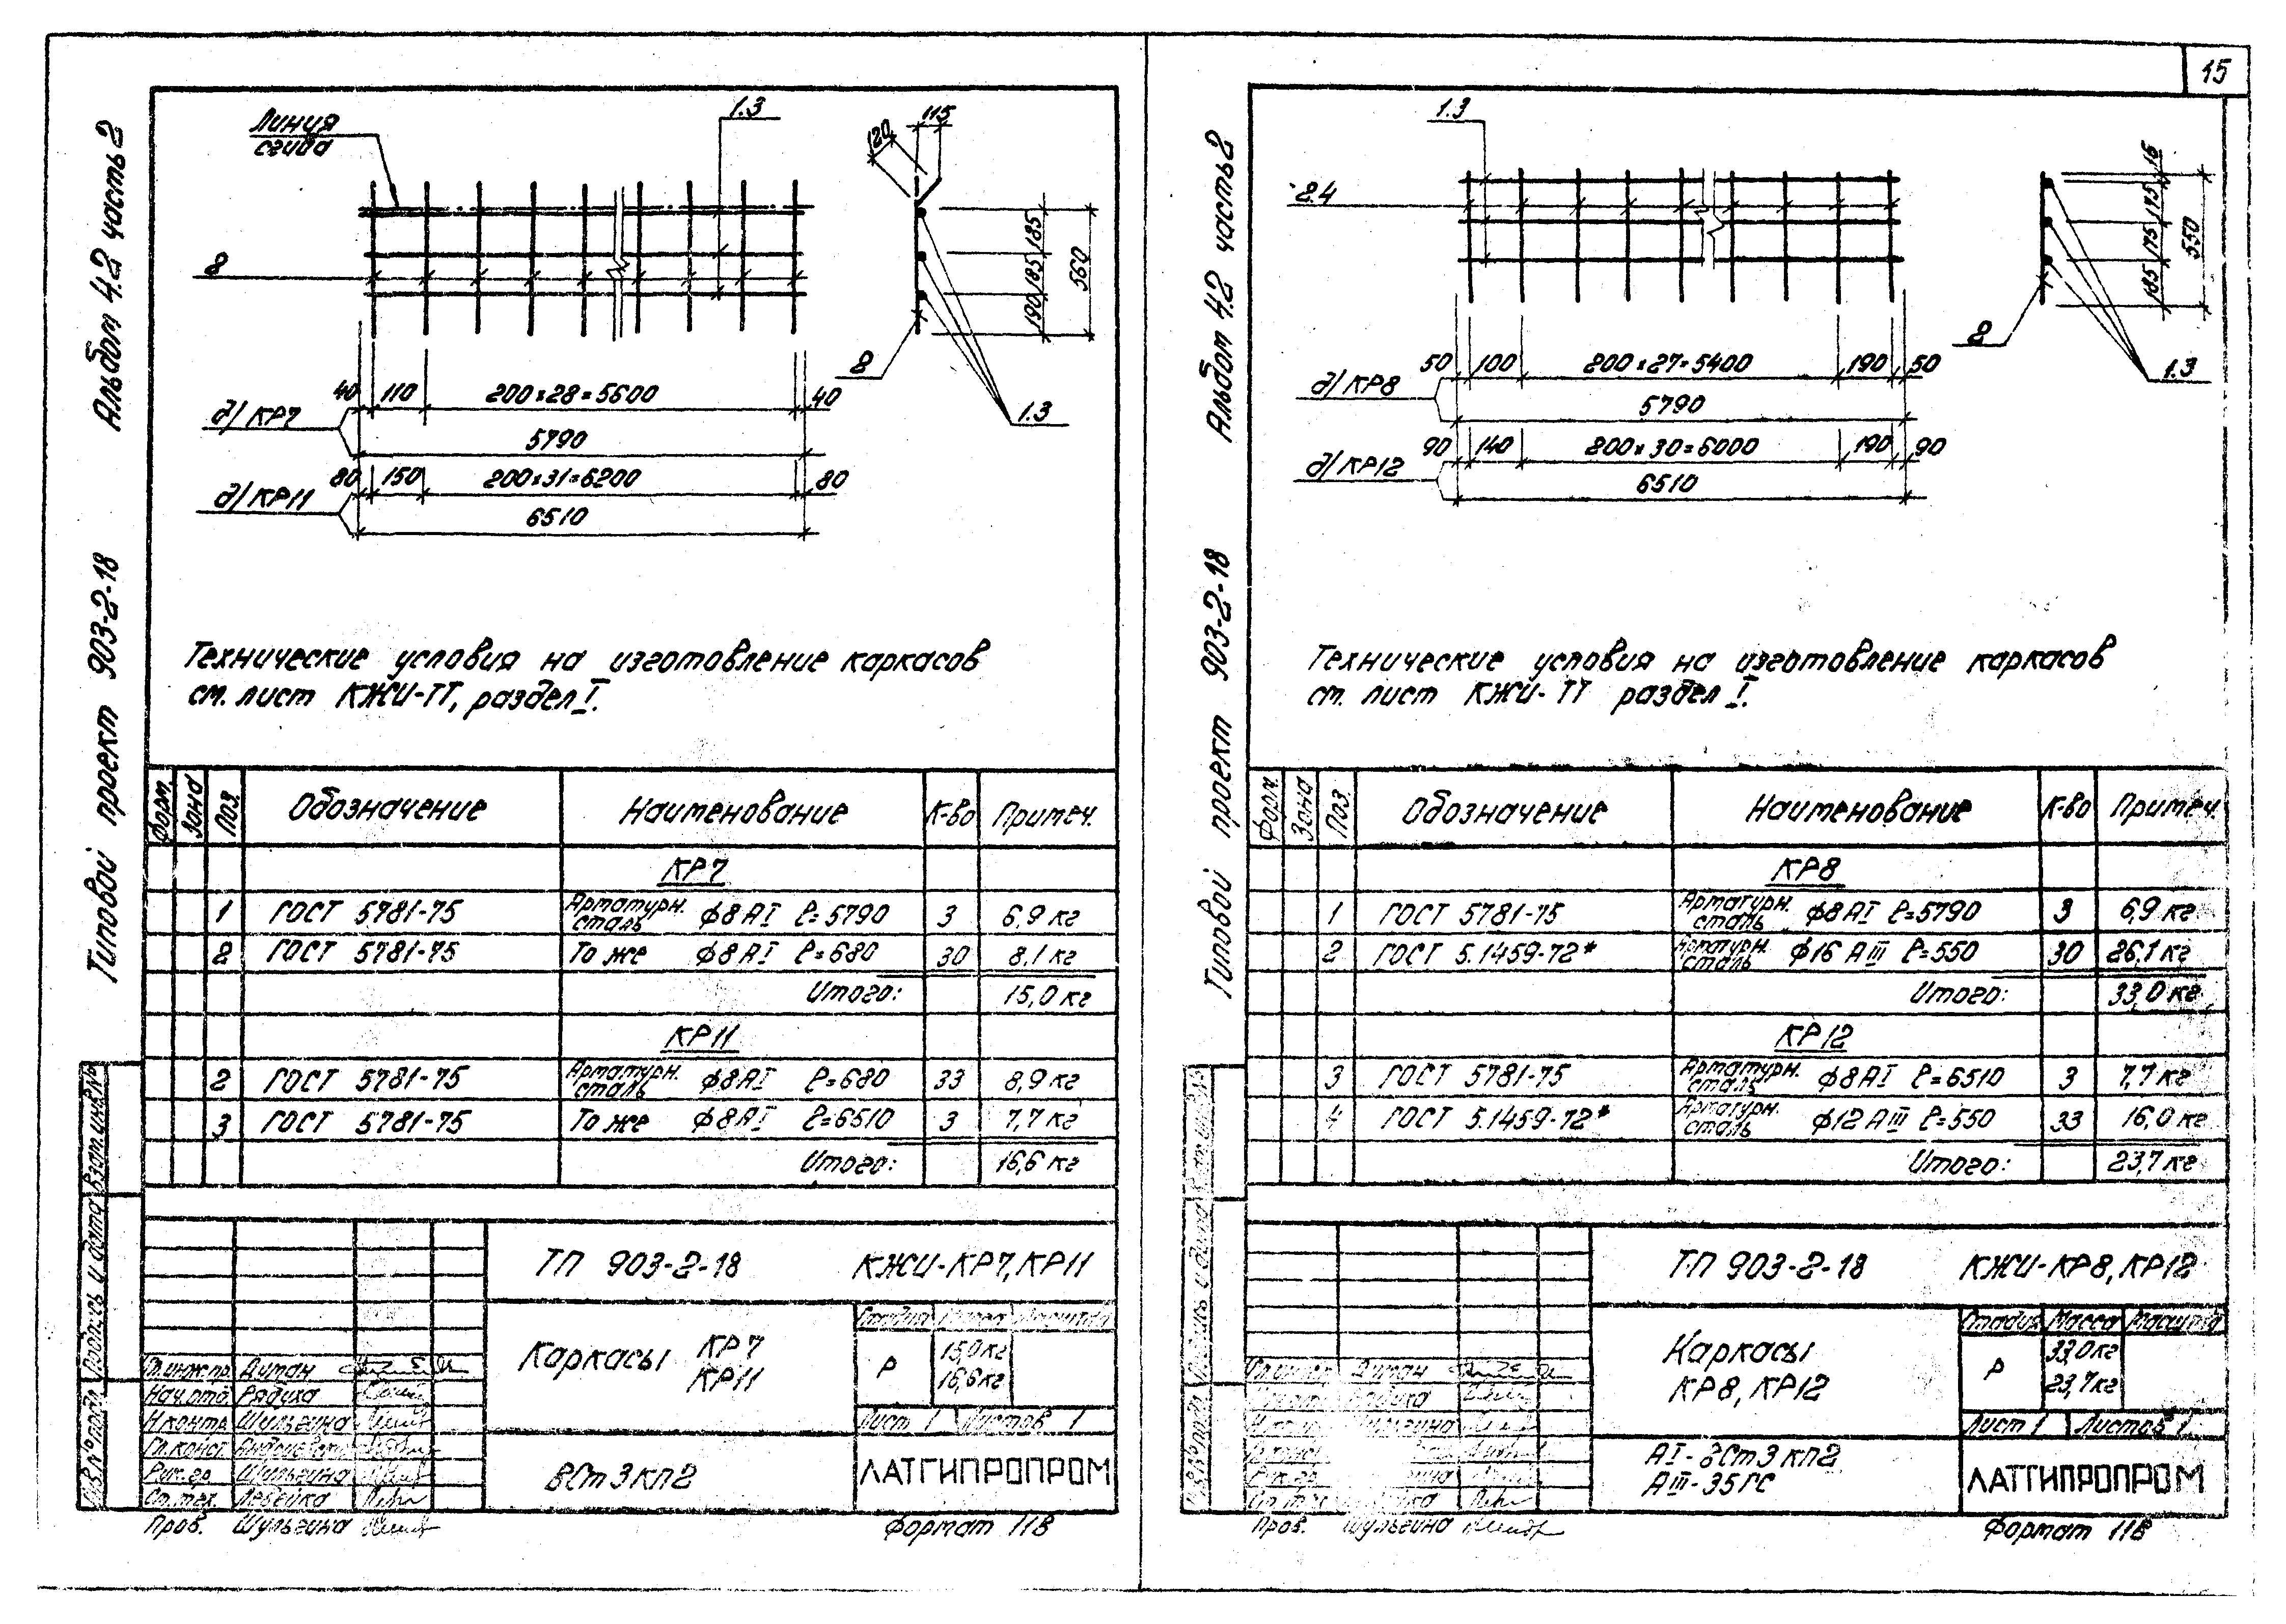 15
Альбом 4.2 часть 2
Типовой проект 903-2-18
Линия
сгиба
1.3
8
115
120
185
185
190
560
8
1.3
д/КР7
40 110 200х28=5600 40
5790
д/КР11
80 150 200х31=6200 80
6510
Технические условия на изготовление каркасов
см. лист КЖИ-ТТ, раздел I.
Форм. Зона Поз. Обозначение Наименование К-во Примеч.
КР7
1 ГОСТ 5781-75 Арматурн. сталь ф8АI ℓ=5790 3 6,9 кг
2 ГОСТ 5781-75 То же ф8АI ℓ=680 30 8,1 кг
Итого: 15,0 кг
КР11
2 ГОСТ 5781-75 Арматурн. сталь ф8АI ℓ=680 33 8,9 кг
3 ГОСТ 5781-75 То же ф8АI ℓ=6510 3 7,7 кг
Итого: 16,6 кг
Взам.инв.№
Подпись и дата
ТП 903-2-18 КЖИ-КР7, КР11
Каркасы КР7
КР11
Стадия Масса Масштаб
Р 15,0кг
16,6кг
Лист 1 Листов 1
ВСт3кп2
ЛАТГИПРОПРОМ
Гл.инж.пр. Дитан
Нач.отд. Рядуха
Н.контр. Шульгина
Гл.конст.
Рук.гр. Шульгина
Ст.тех. Лебейка
Пров. Шульгина
Формат 11В
Альбом 4.2 часть 2
Типовой проект 903-2-18
1.3
2.4
15
175
175
185
550
8
1.3
д/КР8
50 100 200х27=5400 190 50
5790
д/КР12
90 140 200х30=6000 190 90
6510
Технические условия на изготовление каркасов
см. лист КЖИ-ТТ раздел I.
Форм. Зона Поз. Обозначение Наименование К-во Примеч.
КР8
1 ГОСТ 5781-75 Арматурн. сталь ф8АI ℓ=5790 3 6,9 кг
2 ГОСТ 5.1459-72* Арматурн. сталь ф16 АIII ℓ=550 30 26,1 кг
Итого: 33,0 кг
КР12
3 ГОСТ 5781-75 Арматурн. сталь ф8АI ℓ=6510 3 7,7 кг
4 ГОСТ 5.1459-72* Арматурн. сталь ф12 АIII ℓ=550 33 16,0 кг
Итого: 23,7 кг
ТП 903-2-18 КЖИ-КР8, КР12
Каркасы
КР8, КР12
Стадия Масса Масштаб
Р 33,0кг
23,7кг
Лист 1 Листов 1
АI-ВСт3кп2
АIII-35ГС
ЛАТГИПРОПРОМ
Дитан
Пров. Шульгина
Формат 11В